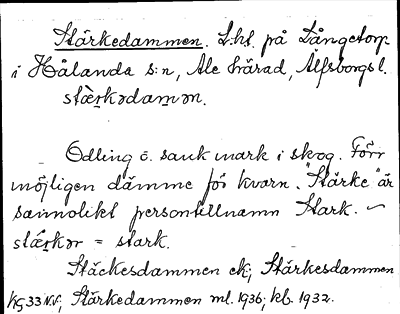 Stärkedammen. L:ht. på Långetorp
i Hålanda s:n, Ale härad, Älfsborgs l.
stæ̀rkədamən.
Odling o. sank mark i skog. Förr
möjligen dämme för kvarn. "Stärke" är
sannolikt persontillnamn Stark. ~
stærkər = stark.
Stäckesdammen ek; Stärkesdammen
Kg 33 N.V; Stärkedammen ml. 1936; kb. 1932.